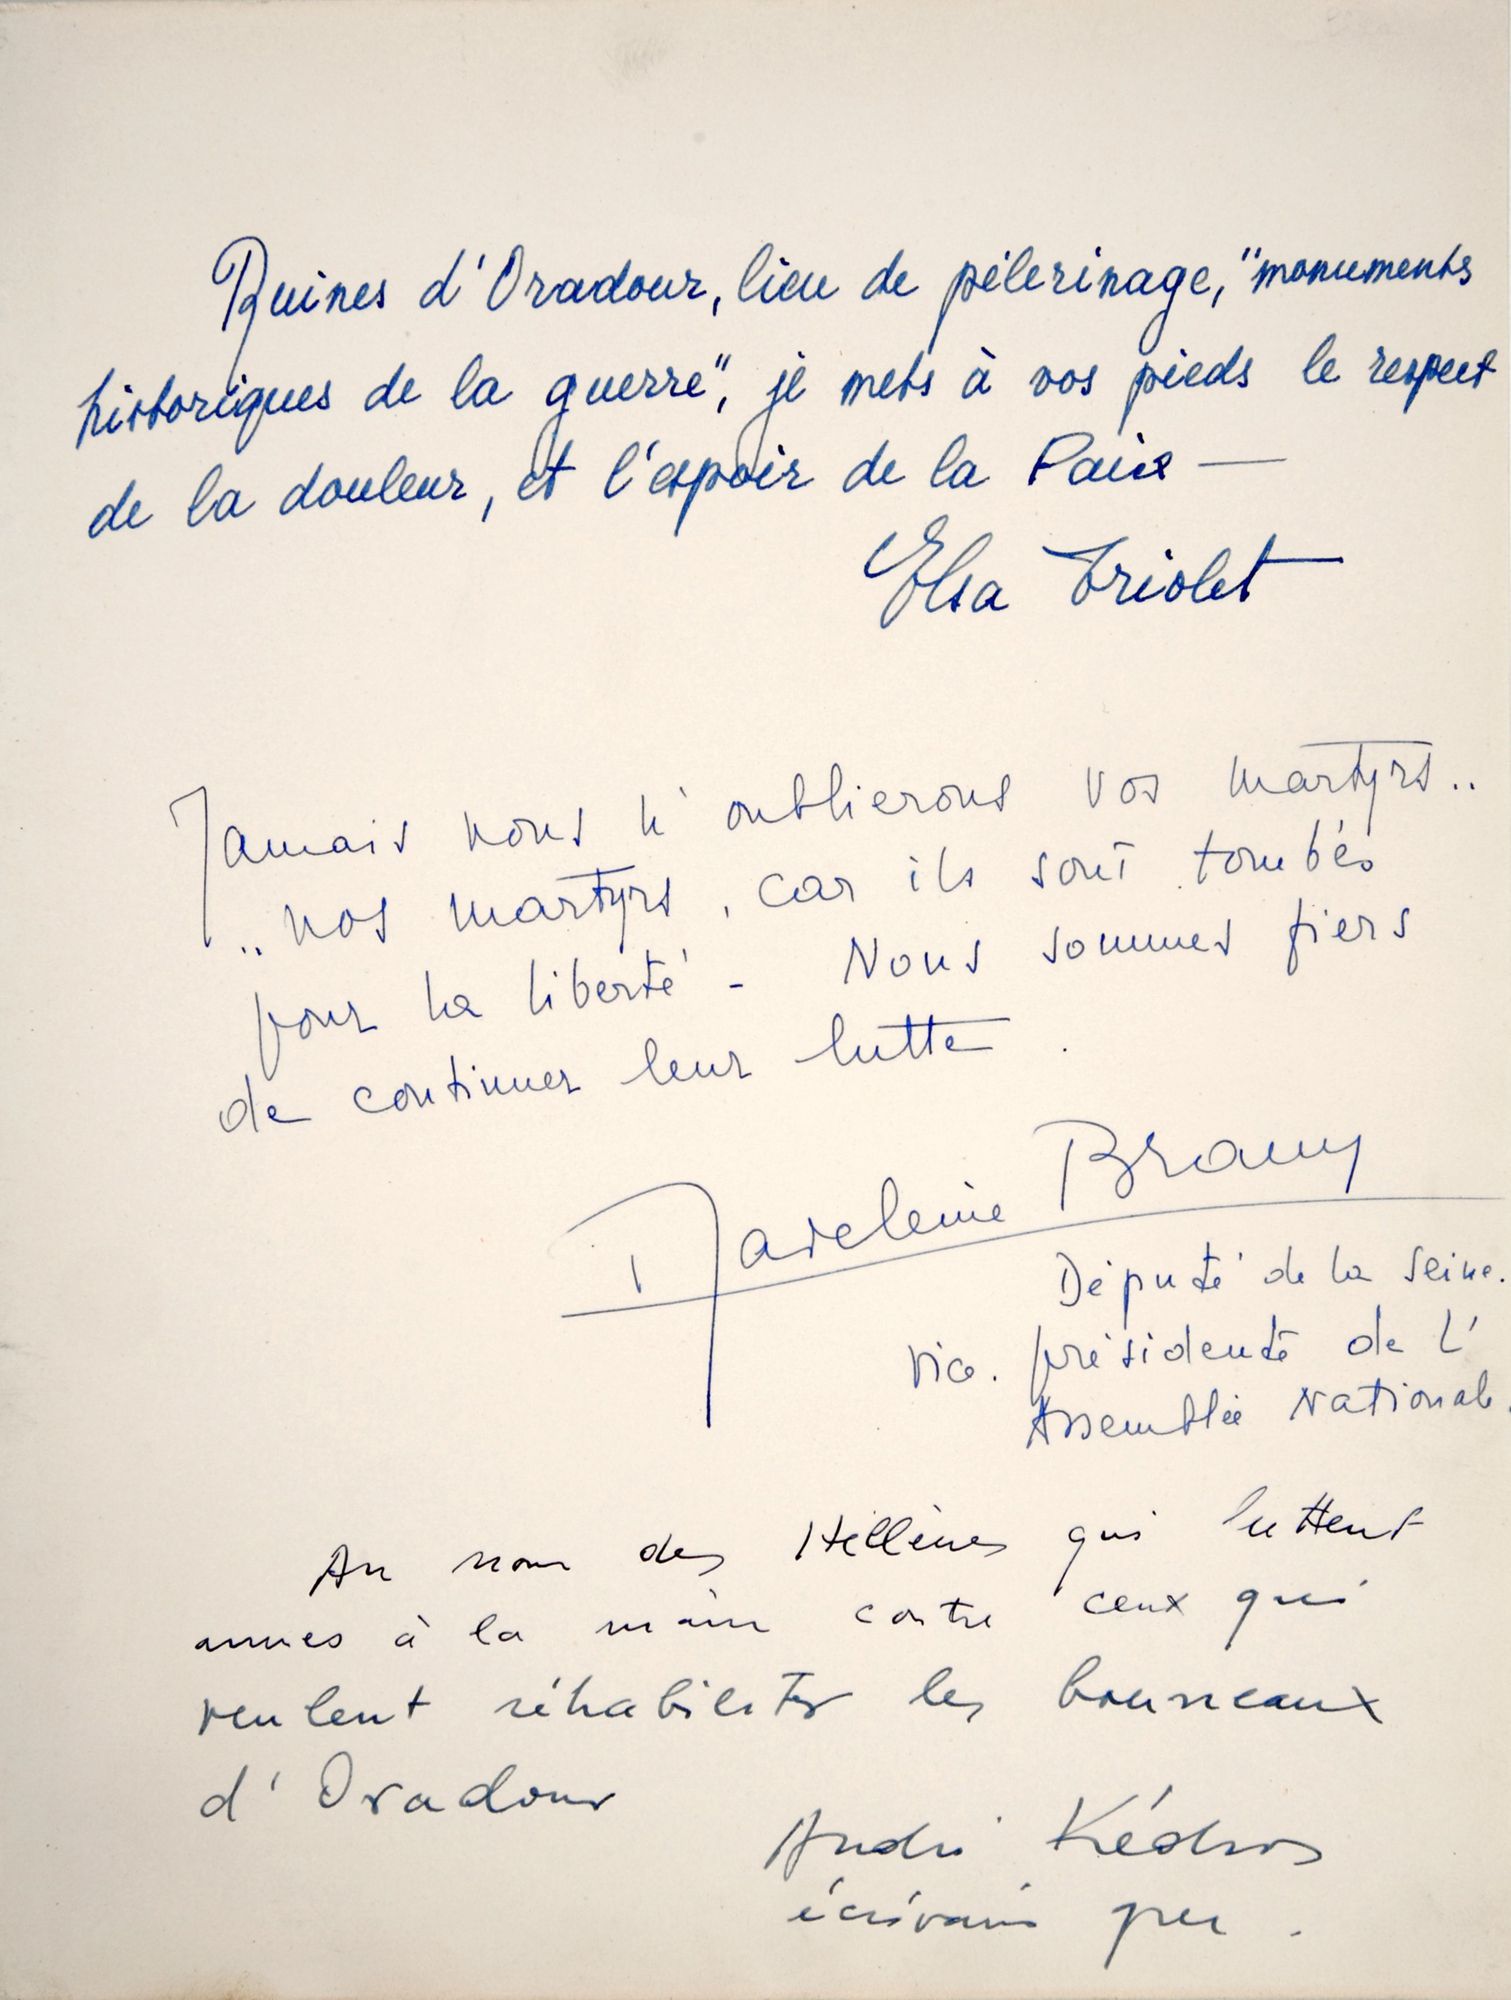 Ruines d'Oradour, lieu de pélerinage, "monuments
historiques de la guerre", je mets à vos pieds le respect
de la douleur, et l'espoir de la Paix —
Elsa Triolet
Jamais nous n'oublierons vos martyrs..
..nos martyrs, car ils sont tombés
pour la liberté - Nous sommes fiers
de continuer leur lutte.
Madeleine Braun
Député de la Seine.
Vice. présidente de l'
Assemblée Nationale.
Au nom des Hellènes qui luttent
armes à la main contre ceux qui
veulent réhabiliter les bourreaux
d'Oradour
André Kédros
écrivain grec.